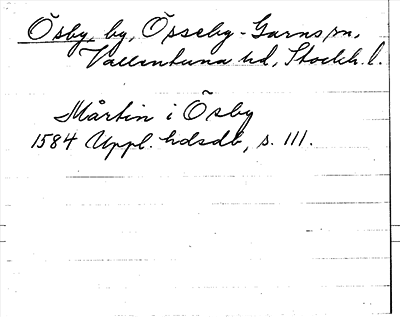 Ösby, by, Össeby-Garns sn,
Vallentuna hd, Stockh. l.
Mårtin i Ösby
1584 Uppl. hdsdb, s. 111.